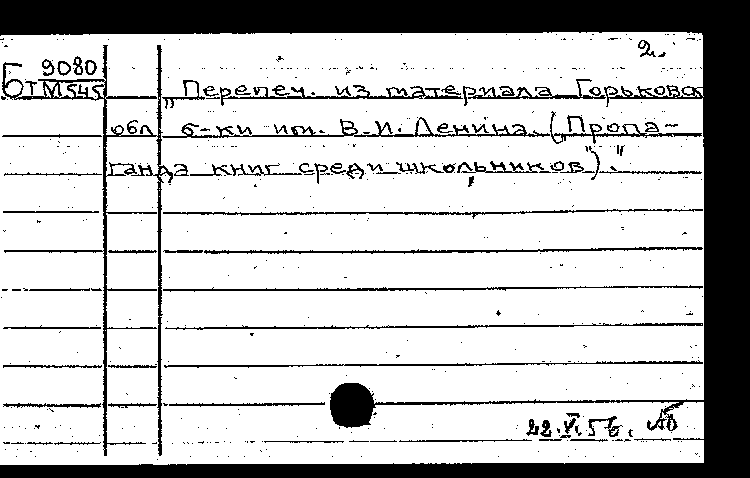 2.
Б 9080
ОТМ545
„Перепеч. из материала Горьковск
обл б-ки им. В.И. Ленина. („Пропа-
ганда книг среди школьников")."
22.V.56.